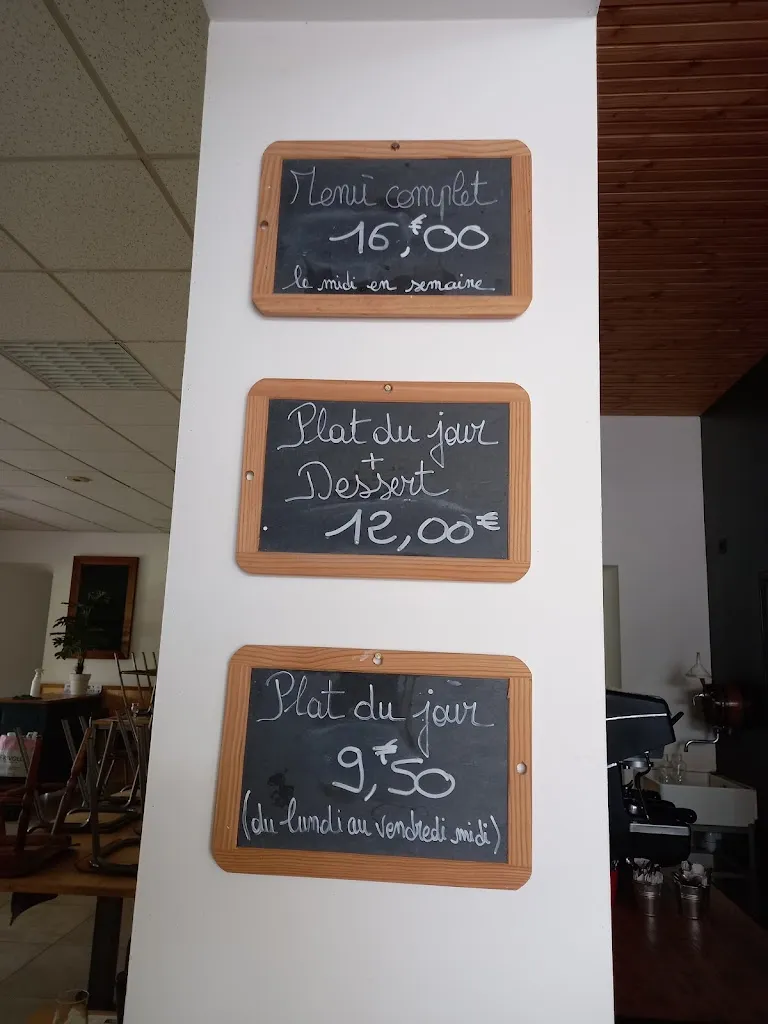 Menu complet
16,€00
le midi en semaine
Plat du jour
+
Dessert
12,00€
Plat du jour
9,€50
(du lundi au vendredi midi)